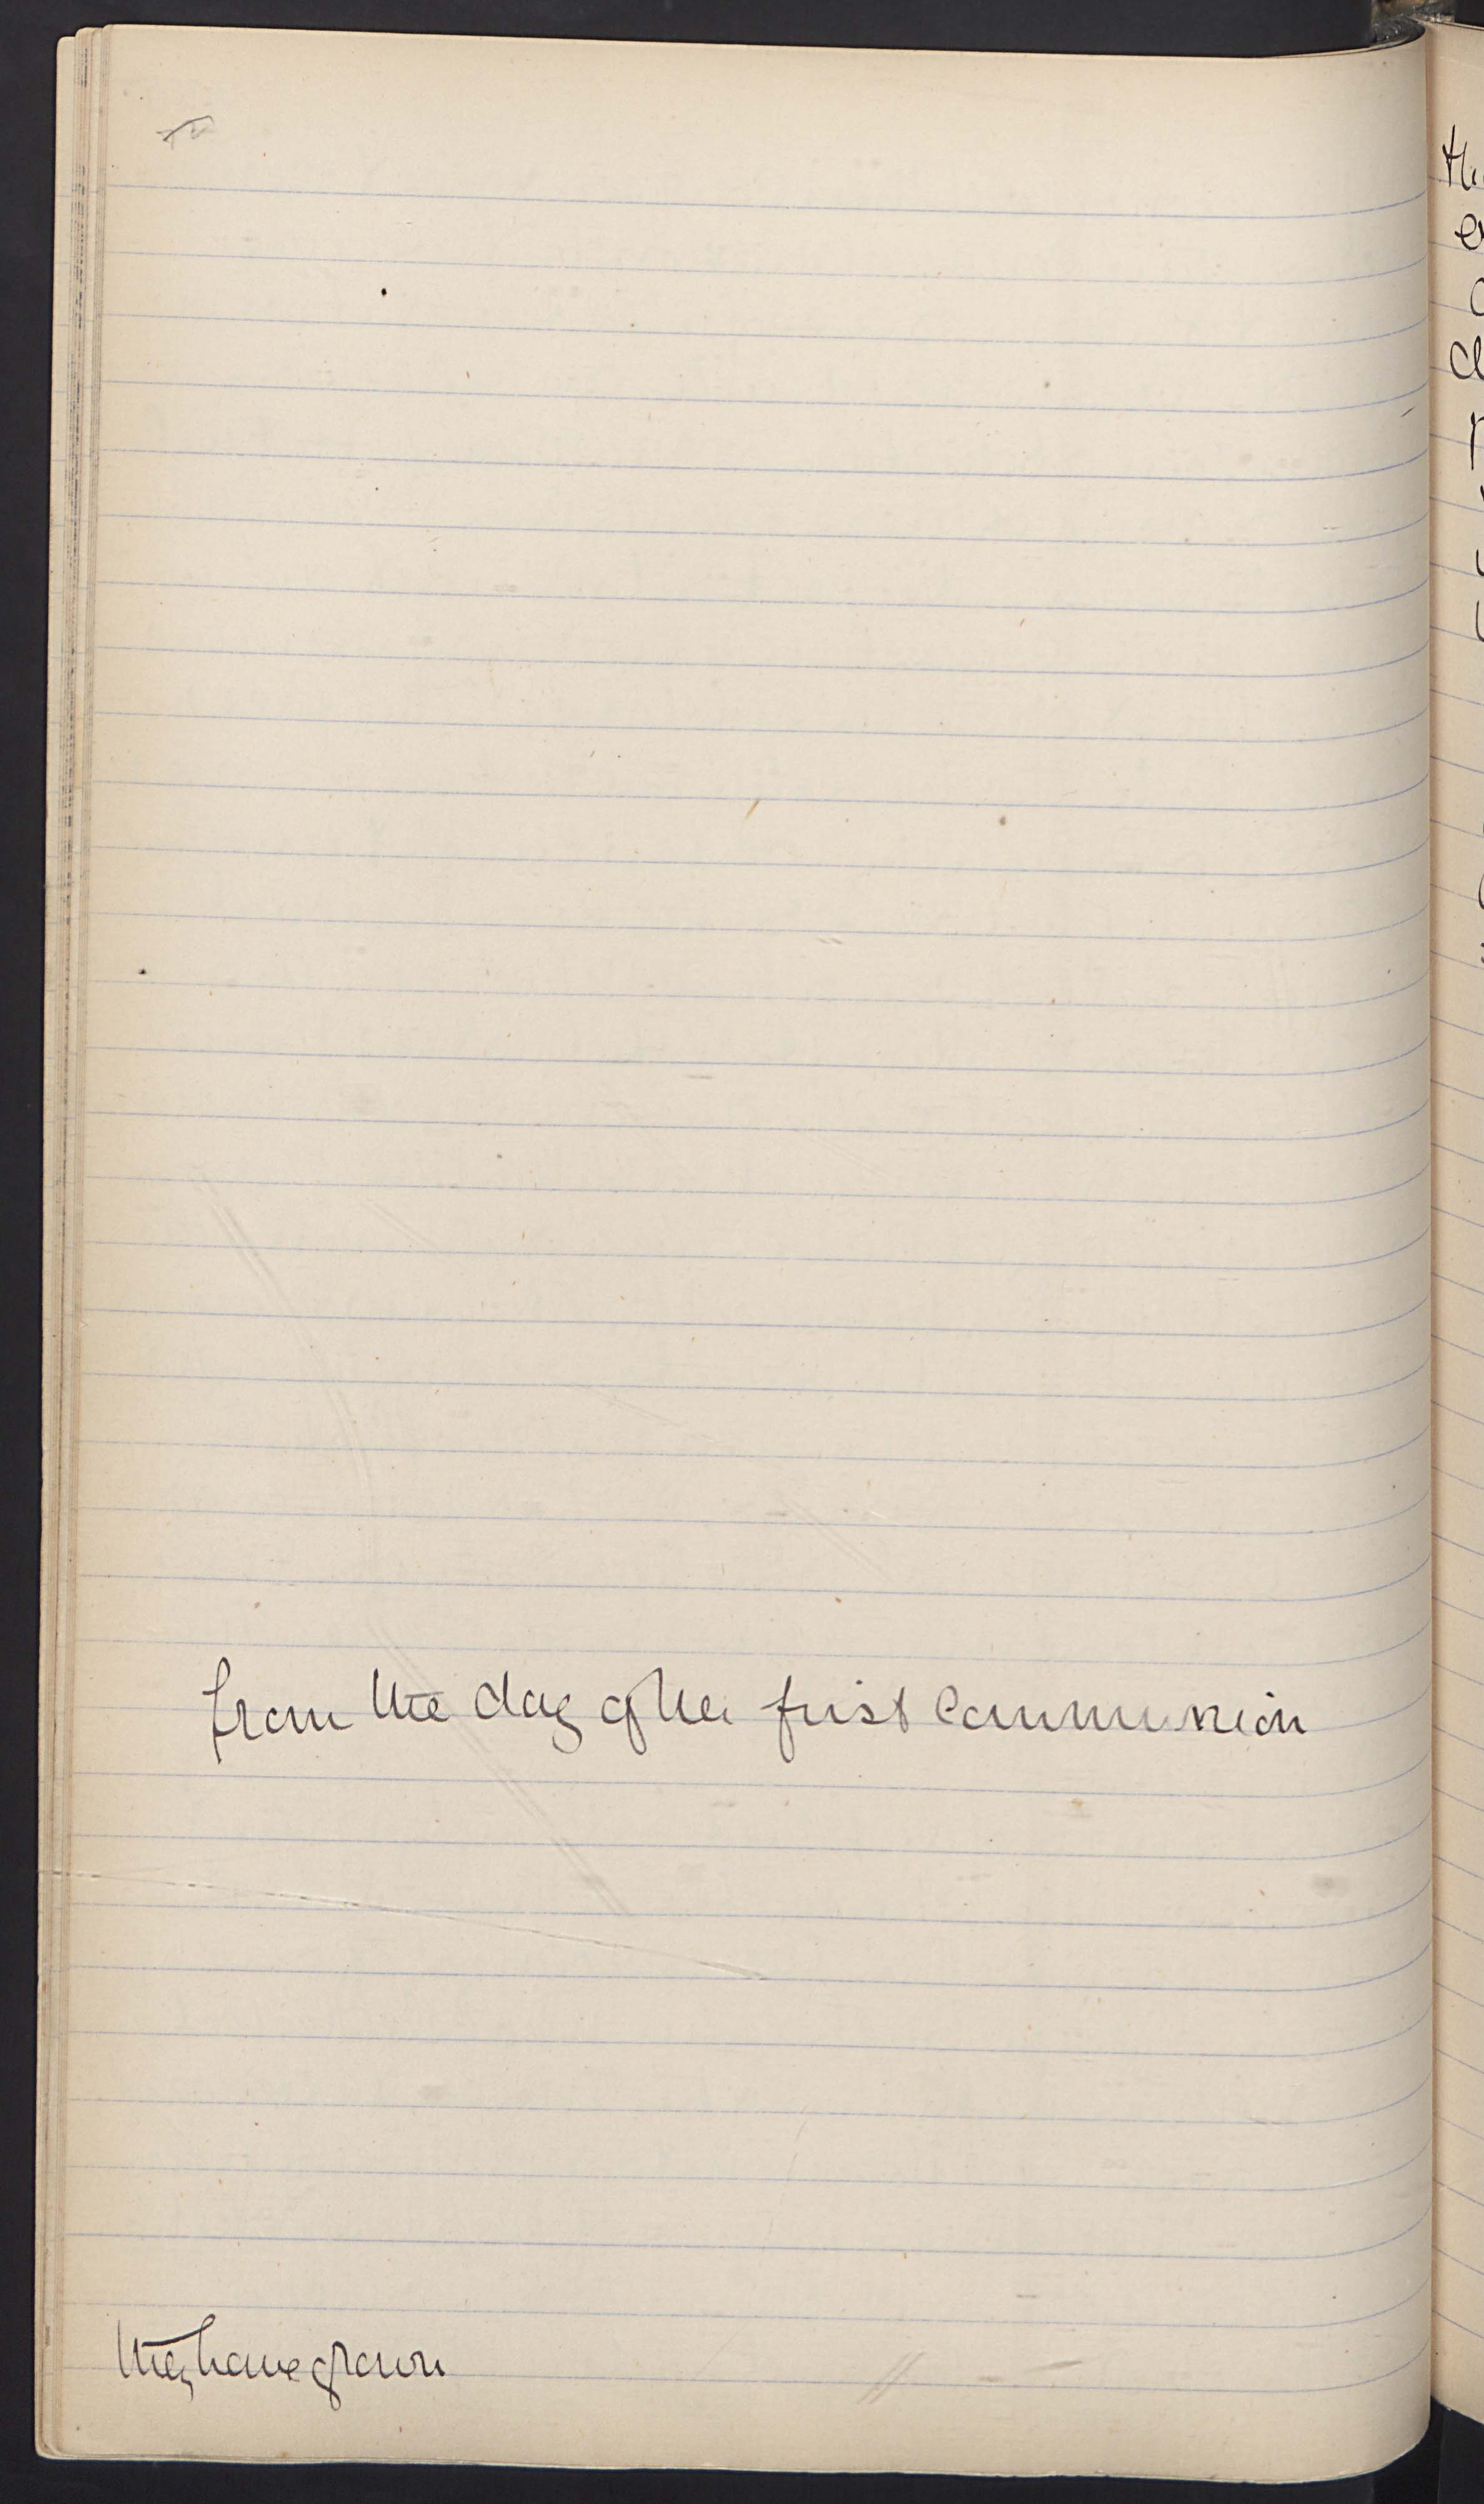 from the day of her first Communion
they have grown